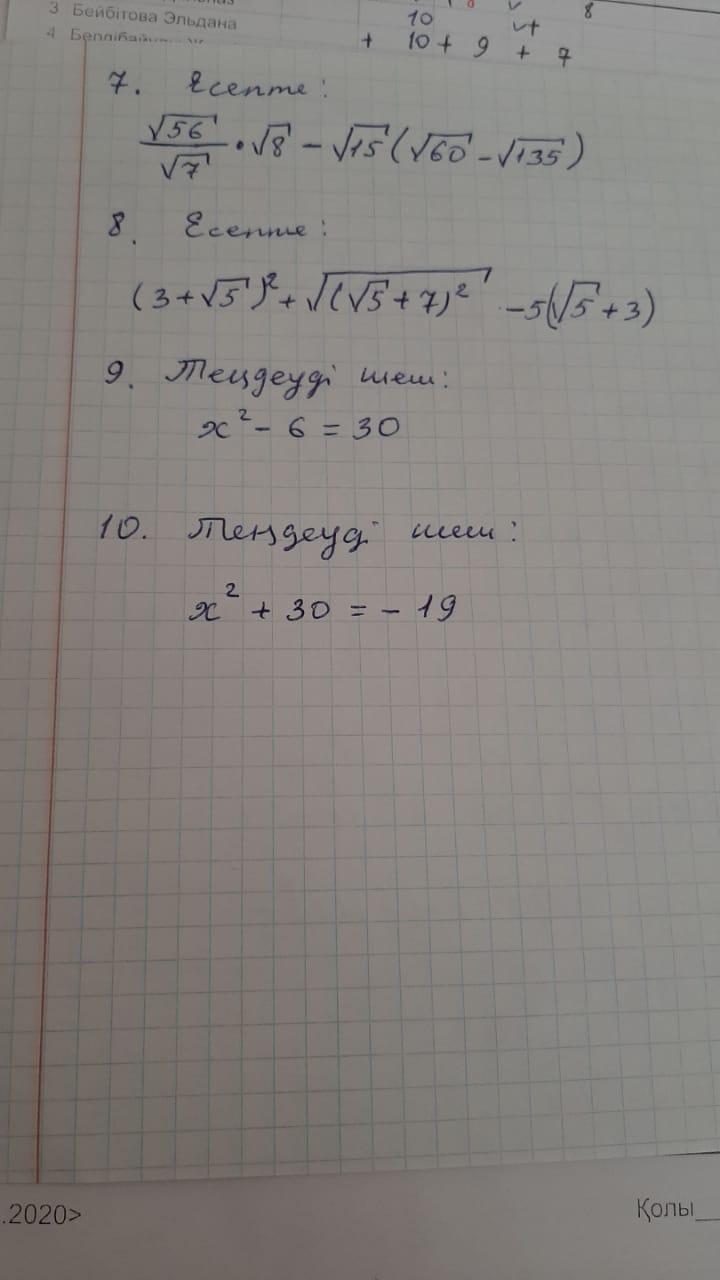 3 Бейбітова Эльдана
8
10
+ 10 + 9 + 7
7. Есепте:
√56/√7 · √8 − √15(√60 − √135)
8. Есепте:
(3+√5)² + √((√5+7)²) − 5(√5+3)
9. Теңдеуді шеш:
x² − 6 = 30
10. Теңдеуді шеш:
x² + 30 = − 19
.2020>
Қолы__